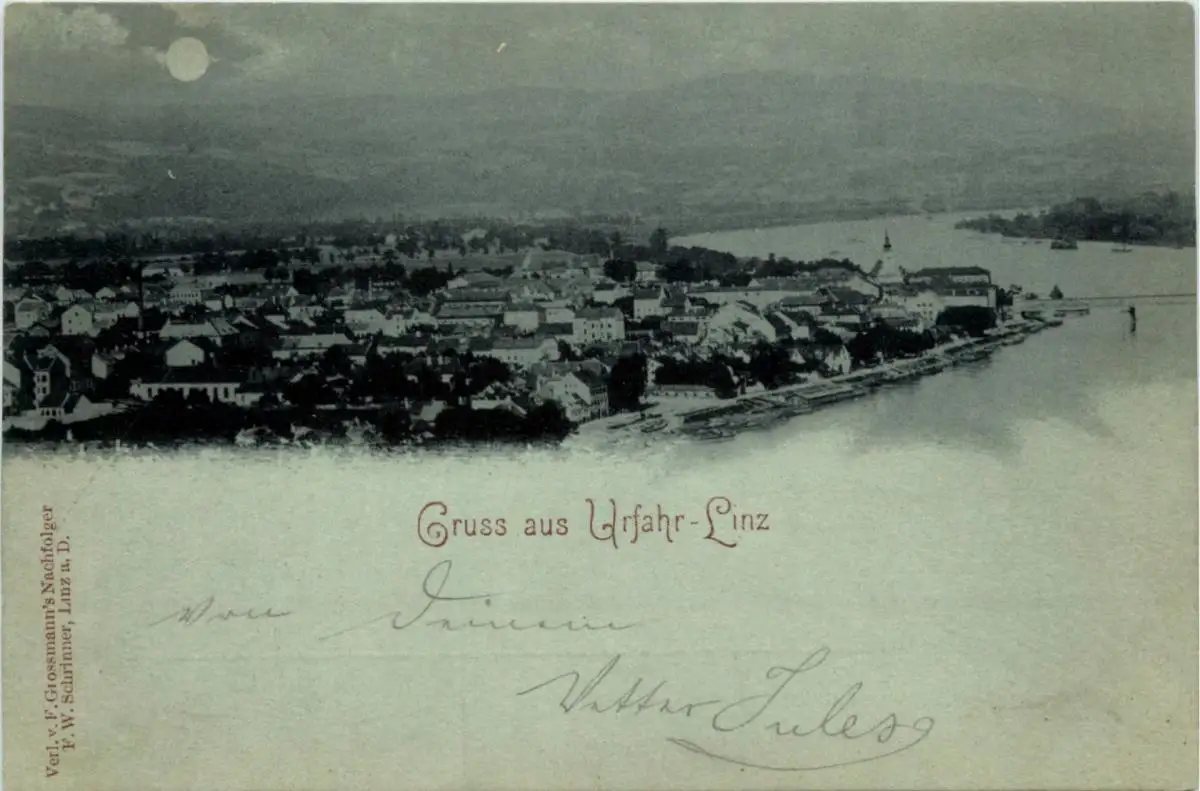 Gruss aus Urfahr-Linz
von Deinem
Vetter Jules
Verl. v. F. Grossmann's Nachfolger
F. W. Schrinner, Linz a. D.